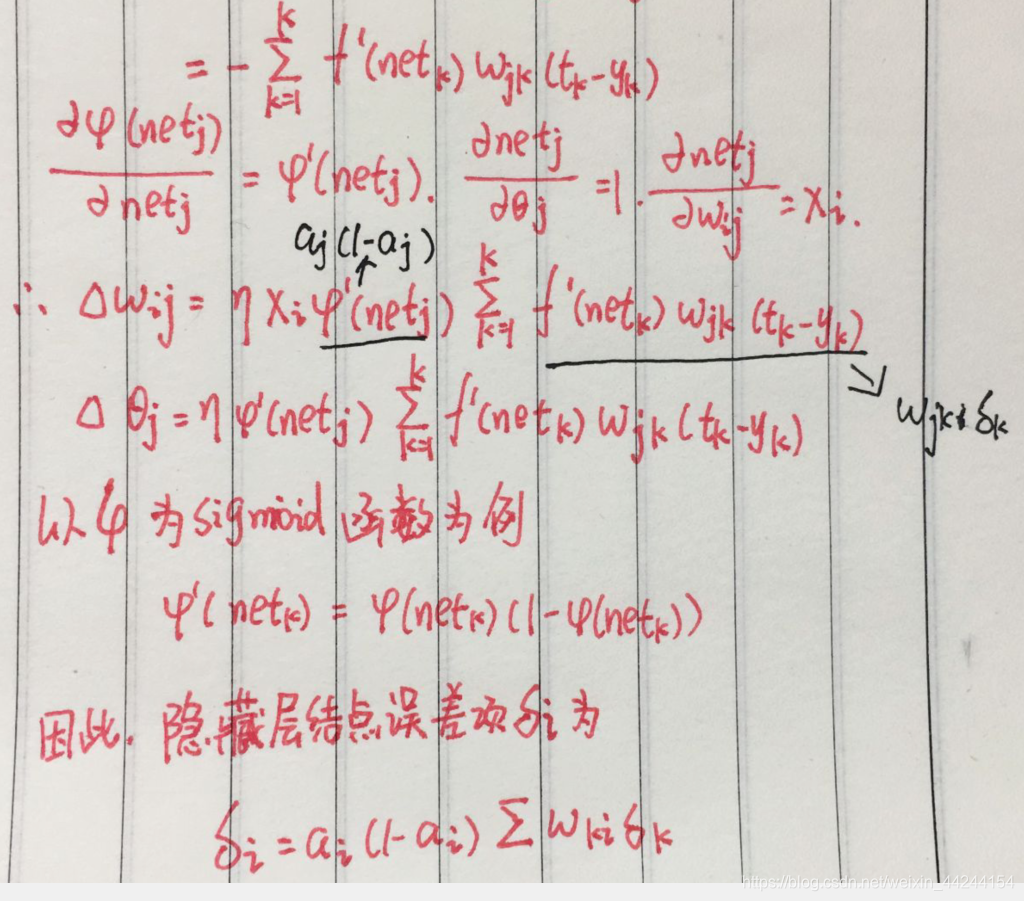 = - Σ_{k=1}^{k} f'(net_k) w_{jk} (t_k - y_k)
∂φ(net_j)/∂net_j = φ'(net_j). ∂net_j/∂θ_j = 1. ∂net_j/∂w_{ij} = x_i.
a_j(1-a_j)
↑
∴ Δw_{ij} = η x_i φ'(net_j) Σ_{k=1}^{k} f'(net_k) w_{jk} (t_k - y_k)
Δθ_j = η φ'(net_j) Σ_{k=1}^{k} f'(net_k) w_{jk} (t_k - y_k)
↘ w_{jk} δ_k
以φ为sigmoid函数为例
φ'(net_k) = φ(net_k)(1-φ(net_k))
因此. 隐藏层结点误差项δ_i为
δ_i = a_i(1-a_i) Σ w_{ki} δ_k
https://blog.csdn.net/weixin_44244154